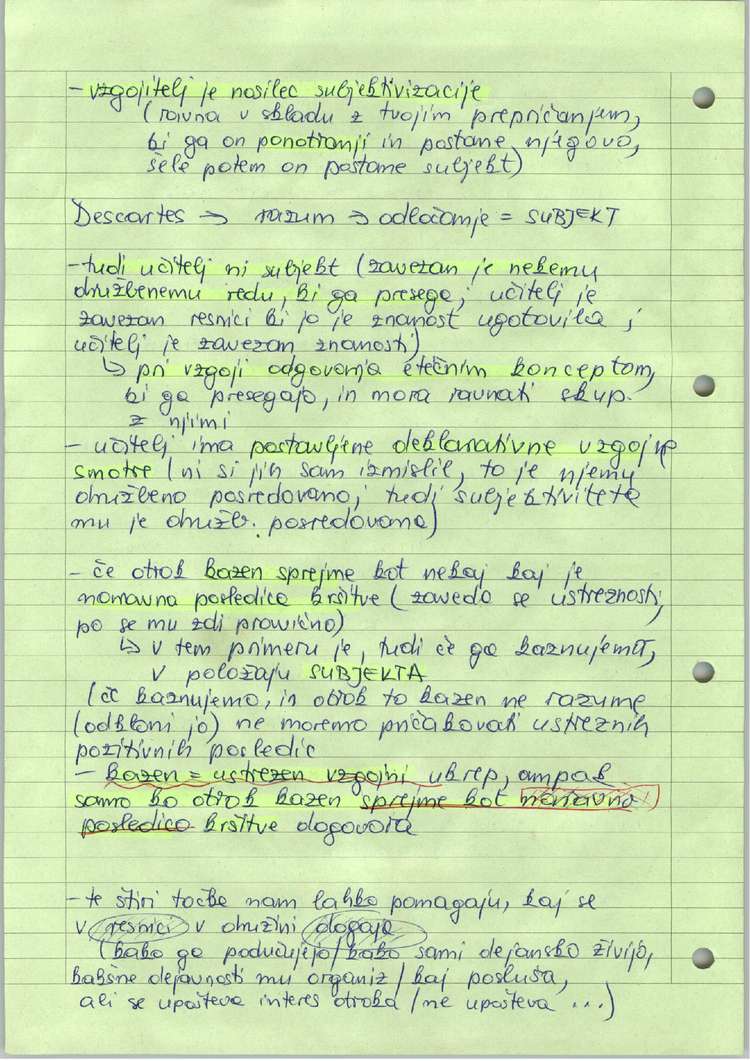 - vzgojitelj je nosilec subjektivizacije
(ravna v skladu z tvojim prepričanjem,
ki ga on ponotranji in postane njegovo,
šele potem on postane subjekt)
Descartes → razum → odločanje = SUBJEKT
- tudi učitelj ni subjekt (zavezan je nekemu
družbenemu redu, ki ga presega; učitelj je
zavezan resnici ki jo je znanost ugotovila;
učitelj je zavezan znanosti)
↳ pri vzgoji odgovarja etičnim konceptom,
ki ga presegajo, in mora ravnati skup.
z njimi
- učitelj ima postavljene deklarativne vzgojne
smotre (ni si jih sam izmislil, to je njemu
družbeno posredovano; tudi subjektiviteta
mu je družb. posredovana)
- če otrok kazen sprejme kot nekaj kaj je
naravna posledica kršitve (zaveda se ustreznosti,
po se mu zdi pravično)
↳ v tem primeru je, tudi če ga kaznujemo,
v položaju SUBJEKTA
(če kaznujemo, in otrok to kazen ne razume
(odkloni jo) ne moremo pričakovati ustreznih
pozitivnih posledic
- kazen = ustrezen vzgojni ukrep, ampak
samo ko otrok kazen sprejme kot naravno
posledico kršitve dogovora
- te štiri točke nam lahko pomagajo, kaj se
v resnici v družini dogaja
(kako ga podučujejo/kako sami dejansko živijo,
kakšne dejavnosti mu organiz/kaj posluša,
ali se upošteva interes otroka/ne upošteva ...)